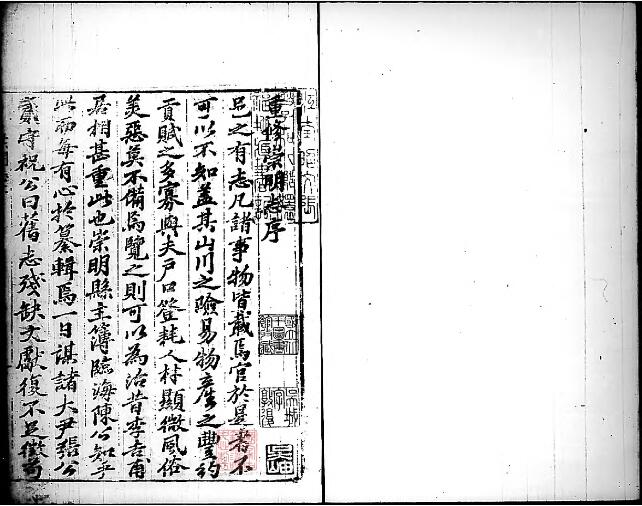 重修崇明志序
邑之有志凡諸事物皆載焉官於是者不
可以不知蓋其山川之險易物產之豐約
貢賦之多寡與夫戶口登耗人材顯微風俗
美惡莫不備焉覽之則可以為治昔李吉甫
居相甚重此也崇明縣主簿臨海陳公知乎
此而每有心於纂輯焉一日謀諸大尹張公
貳守祝公曰舊志殘缺文獻復不足徵苟